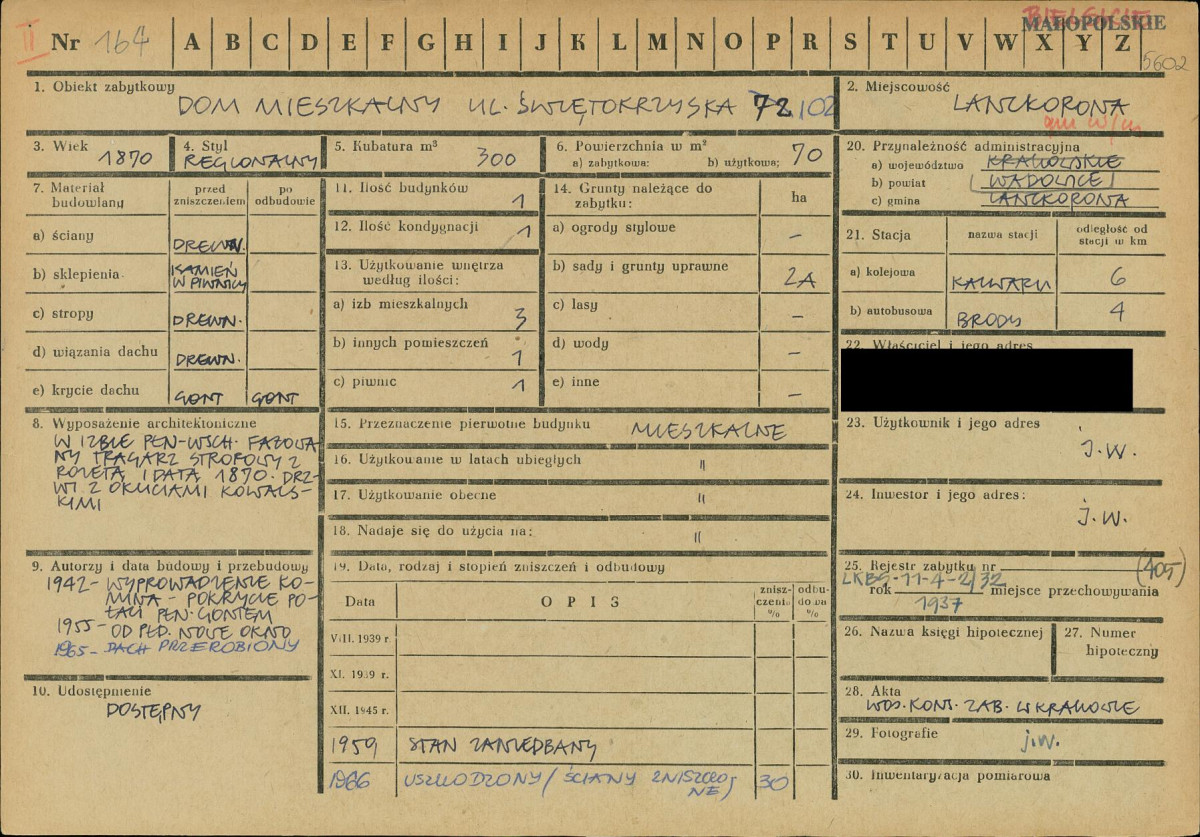 BIELSKIE
MAŁOPOLSKIE
II Nr 164 A B C D E F G H I J K L M N O P R S T U V W X Y Z
5602
1. Obiekt zabytkowy
DOM MIESZKALNY UL. ŚWIĘTOKRZYSKA 72, 102
2. Miejscowość
LANCKORONA
gm w/m
3. Wiek 1870
4. Styl
REGIONALNY
5. Kubatura m³ 300
6. Powierzchnia w m²
a) zabytkowa: b) użytkowa; 70
7. Materiał budowlany
przed zniszczeniem
po odbudowie
a) ściany DREWN.
b) sklepienia KAMIEŃ
W PIWNICY
c) stropy DREWN.
d) wiązania dachu DREWN.
e) krycie dachu GONT GONT
8. Wyposażenie architektoniczne
W IZBIE PŁN-WSCH. FAZOWA
NY TRAGARZ STROPOWY Z
ROZETĄ I DATĄ 1870. DRZ-
WI Z OKUCIAMI KOWALS-
KIMI
9. Autorzy i data budowy i przebudowy
1942 - WYPROWADZENIE KO-
MINA - POKRYCIE PO-
ŁACI PŁN. GONTEM
1955 - OD PŁD. NOWE OKNO
1965 - DACH PRZEROBIONY
10. Udostępnienie
DOSTĘPNY
11. Ilość budynków 1
12. Ilość kondygnacji 1
13. Użytkowanie wnętrza
według ilości:
a) izb mieszkalnych 3
b) innych pomieszczeń 1
c) piwnic 1
14. Grunty należące do
zabytku: ha
a) ogrody stylowe –
b) sady i grunty uprawne 2A
c) lasy –
d) wody –
e) inne –
15. Przeznaczenie pierwotne budynku MIESZKALNE
16. Użytkowanie w latach ubiegłych "
17. Użytkowanie obecne "
18. Nadaje się do użycia na: "
19. Data, rodzaj i stopień zniszczeń i odbudowy
Data OPIS zniszczenia % odbudowa %
VIII. 1939 r.
XI. 1939 r.
XII. 1945 r.
1959 STAN ZANIEDBANY
1966 USZKODZONY / ŚCIANY ZNISZCZO
NE / 30
20. Przynależność administracyjna
a) województwo KRAKOWSKIE
b) powiat WADOWICE
c) gmina LANCKORONA
21. Stacja nazwa stacji odległość od
stacji w km
a) kolejowa KALWARII 6
b) autobusowa BRODY 4
22. Właściciel i jego adres
23. Użytkownik i jego adres
J.W.
24. Inwestor i jego adres:
J.W.
25. Rejestr zabytku nr (405)
LKBS-11-4-2/32
rok 1937 miejsce przechowywania
26. Nazwa księgi hipotecznej
27. Numer
hipoteczny
28. Akta
WOJ. KONS. ZAB. W KRAKOWIE
29. Fotografie j.w.
30. Inwentaryzacja pomiarowa